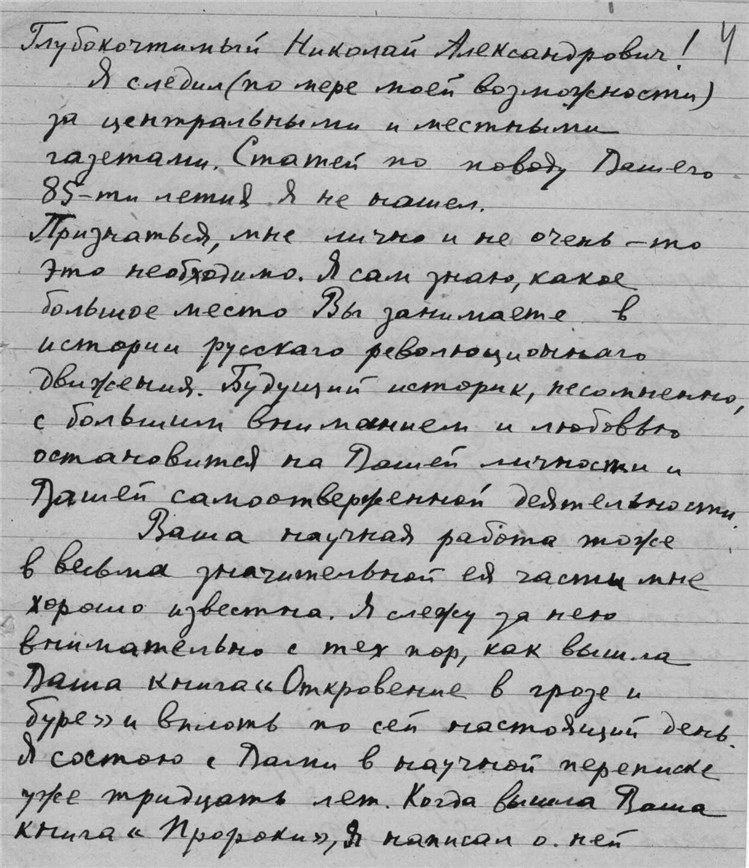 Глубокочтимый Николай Александрович! 4
Я следил (по мере моей возможности)
за центральными и местными
газетами. Статей по поводу Вашего
85-ти летия я не нашел.
Признаться, мне лично и не очень-то
это необходимо. Я сам знаю, какое
большое место Вы занимаете в
истории русскаго революционнаго
движения. Будущий историк, несомненно,
с большим вниманием и любовью
остановится на Вашей личности и
Вашей самоотверженной деятельности.
Ваша научная работа тоже
в весьма значительной ея части мне
хорошо известна. Я слежу за нею
внимательно с тех пор, как вышла
Ваша книга «Откровение в грозе и
буре» и вплоть по сей настоящий день.
Я состою с Вами в научной переписке
уже тридцать лет. Когда вышла Ваша
книга «Пророки», я написал о ней